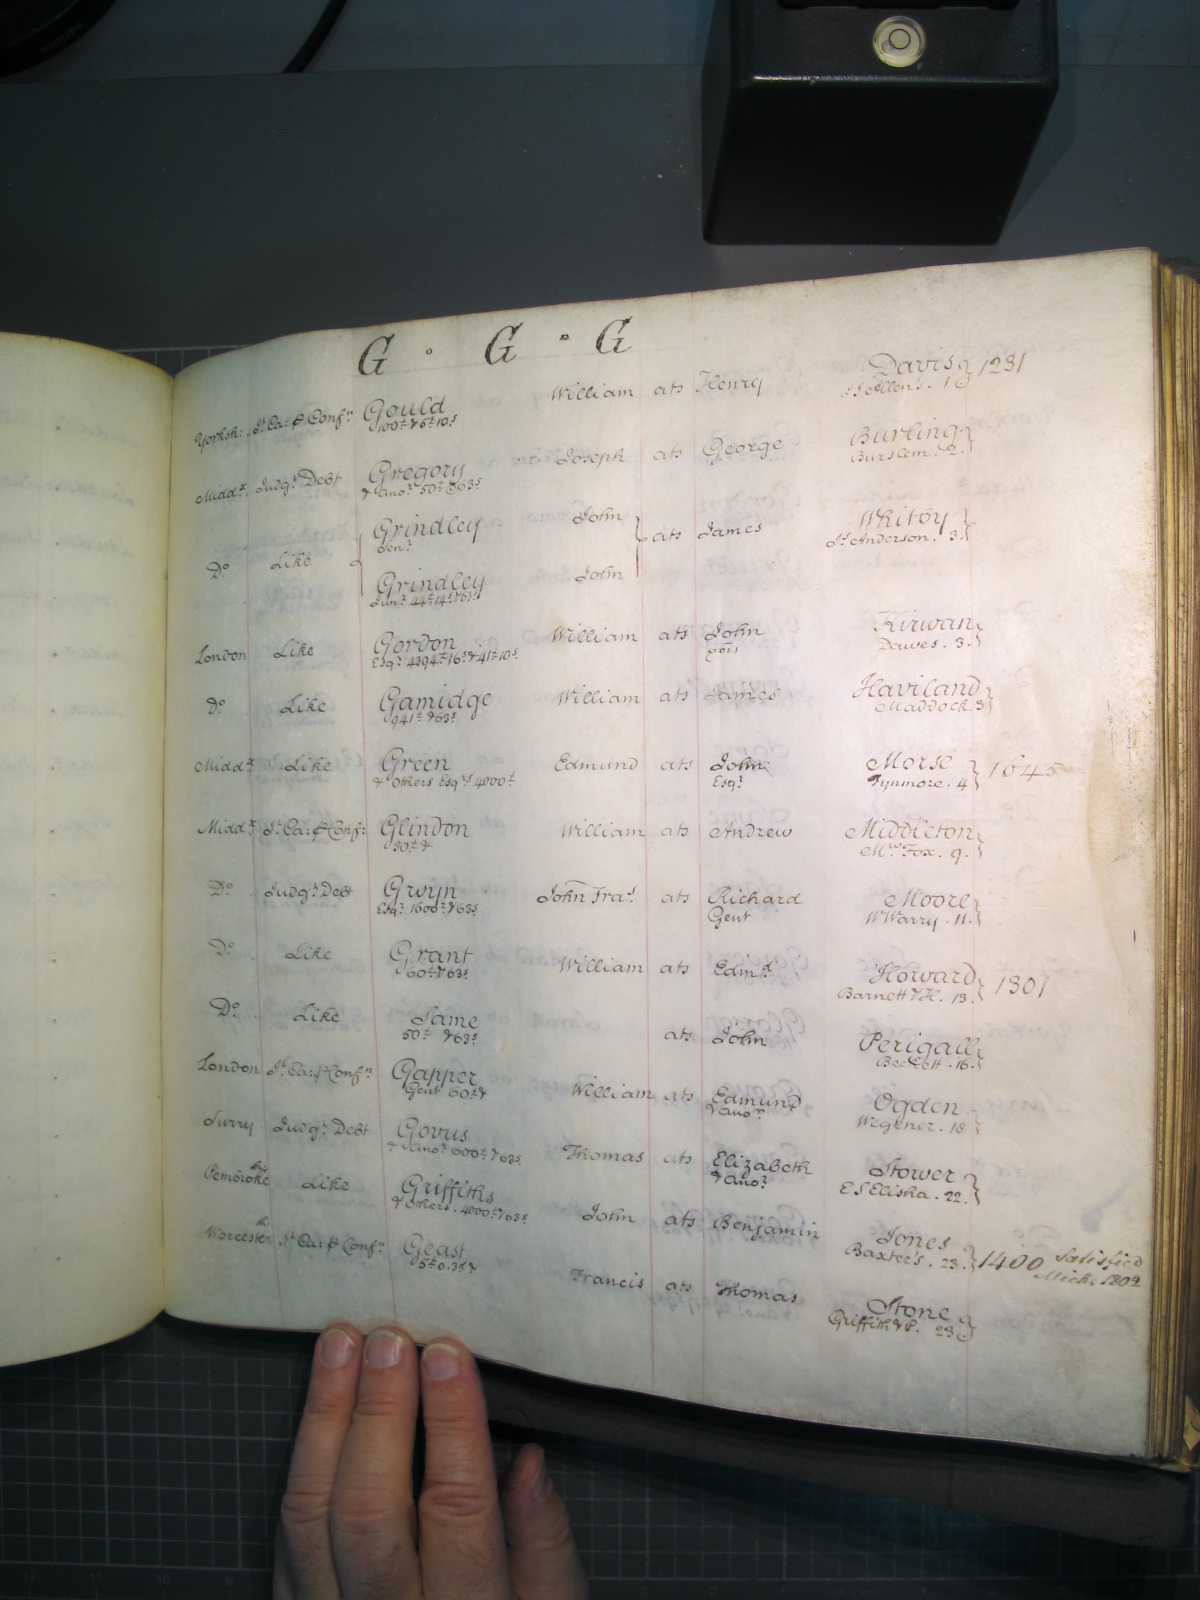 G · G · G
Yorksh: Jt. Ca: & Conf.n Gould William ats Henry Davis 1231
100£ & 6£ 10s St. Allen's . 1
Midd.x Judg.t Debt Gregory Joseph ats George Burling
& ano.r 50£ & 63s Burslem . 2
Grindley John ats James Whitby
Sen.r Jn. Anderson . 3
D.o Like
Grindley John
Jun.r 44£ 14s & 63s
London Like Gordon William ats John Kirwan
Esq.r 4394£ 16s & 41£ 10s Dawes . 3
D.o Like Gamidge William ats James Haviland
941£ & 63s Maddock . 3
Midd.x Like Green Edmund ats John Morse 1645
& Others Esq.rs 4000£ Esq.r Fynmore . 4
Midd.x Jt. Ca: & Conf.n Glindon William ats Andrew Middleton
30£ & M.w Fox . 9
D.o Judg.t Debt Gwyn John Fra.s ats Richard Moore
Esq.r 1600£ & 63s Gent W Warry . 11
D.o Like Grant William ats Edm.d Howard 1301
60£ & 63s Barnett & H . 13
D.o Like Same ats John Perigall
50£ & 63s Beckett . 16
London Jt. Ca: & Conf.n Gapper William ats Edmund Ogden
Gent 60£ & & ano.r Wegener . 18
Surry Judg.t Debt Govus Thomas ats Elizabeth Stower
& ano.r 600£ & 63s & ano.r E S Elisha . 22
Pembroke Like Griffiths John ats Benjamin Jones 1400 Satisfied
& Others . 4000£ & 63s Baxter's . 23 Mich. 1802
Worcester Jt. Ca: & Conf.n Geast Francis ats Thomas Stone
Griffith & P. 23